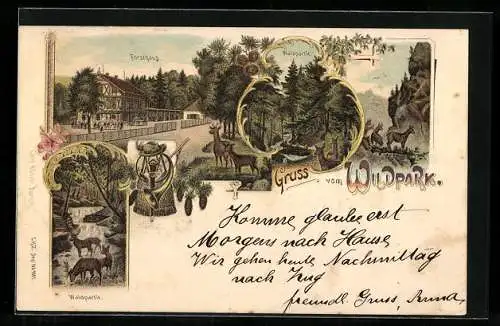 Forsthaus
Waldpartie
Gruss vom WILDPARK.
Waldpartie.
Komme glaube erst
Morgens nach Hause
Wir gehen heute Nachmittag
nach Zug
freundl. Gruss,